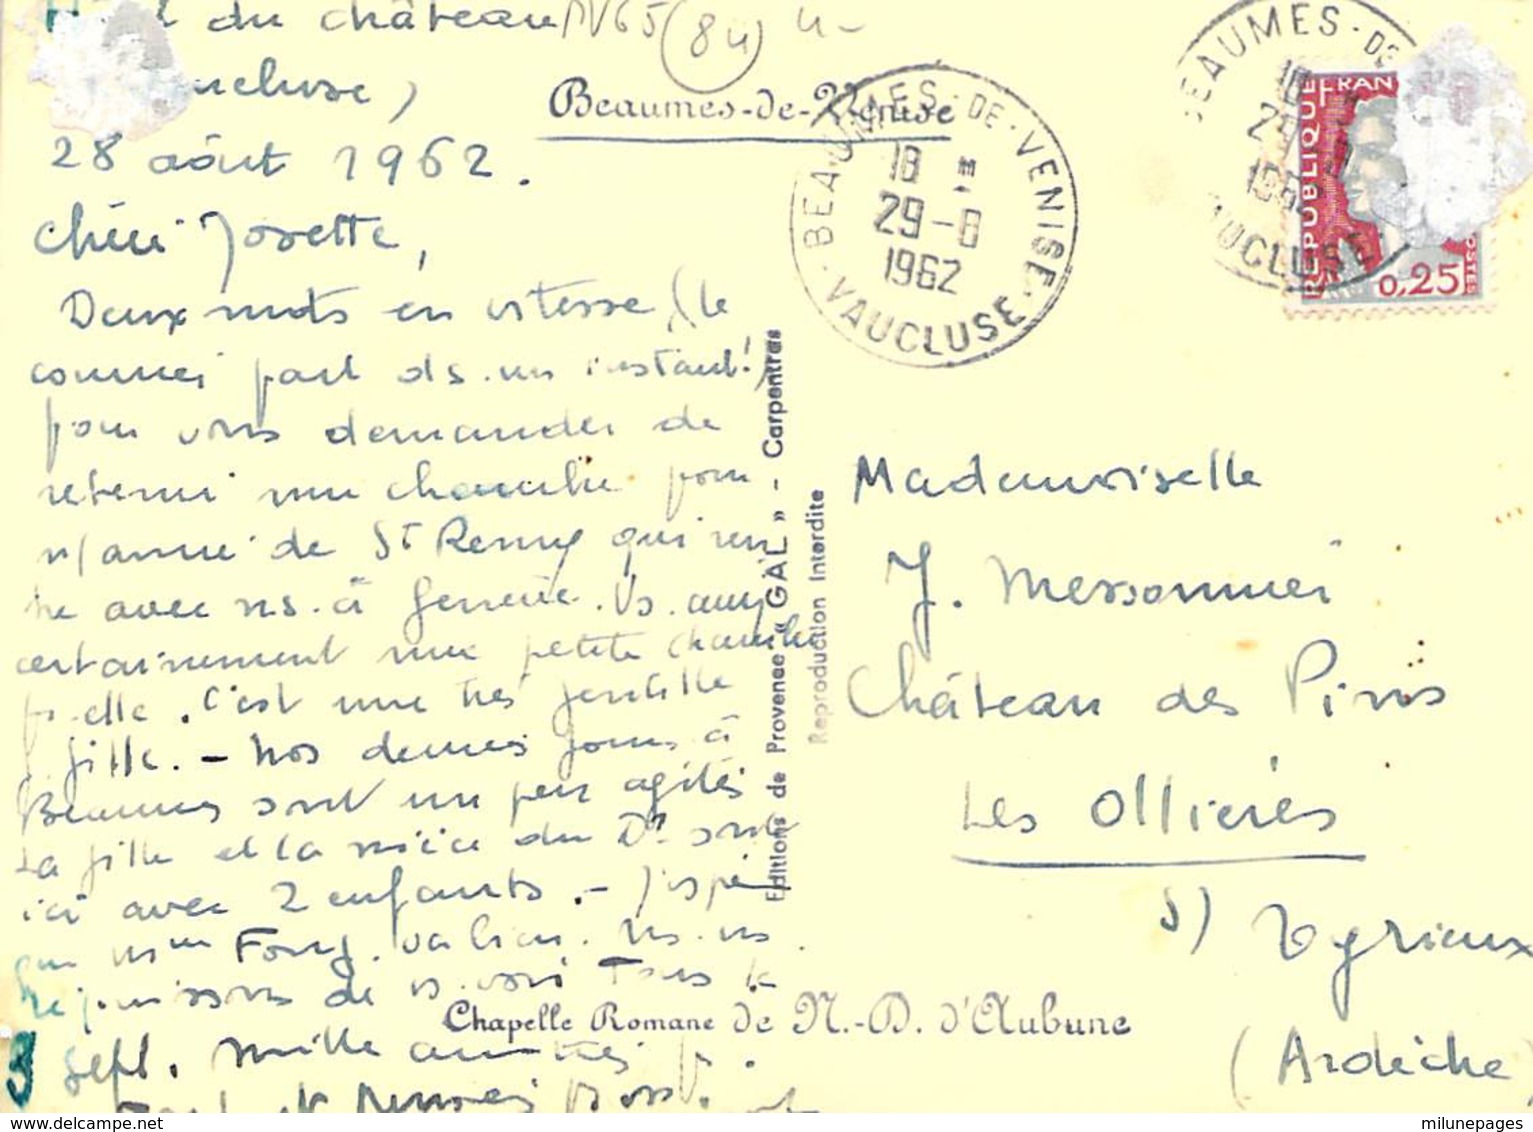 du château PV65 (84) 4-
Vaucluse)
28 août 1962.
Chère Josette,
Deux mots en vitesse, (le
courrier part ds. un instant!)
pour vous demander de
retenir une chambre pour
n/amie de St Remy qui ren
tre avec ns. à Genève. Vs. aurez
certainement une petite chambre
pr. elle. C'est une très gentille
j. fille. - Nos derniers jours à
Beaumes sont un peu agités
La fille et la nièce du Dr sont
ici avec 2 enfants. - J'espère
que Mme Fong. va bien. Ns. ns
réjouissons de vs. voir Tous le
3 sept. mille amitiés
Beaumes-de-Venise
BEAUMES-DE-VENISE
18 H
29-8
1962
VAUCLUSE
BEAUMES-DE
18
29
1962
VAUCLUSE
REPUBLIQUE FRAN
0,25
POSTES
Editions de Provence « GAL » - Carpentras
Reproduction Interdite
Mademoiselle
J. Messonnier
Château des Pins
Les Ollières
s/ Eyrieux
(Ardèche)
Chapelle Romane de N.-D. d'Aubune
milunepages